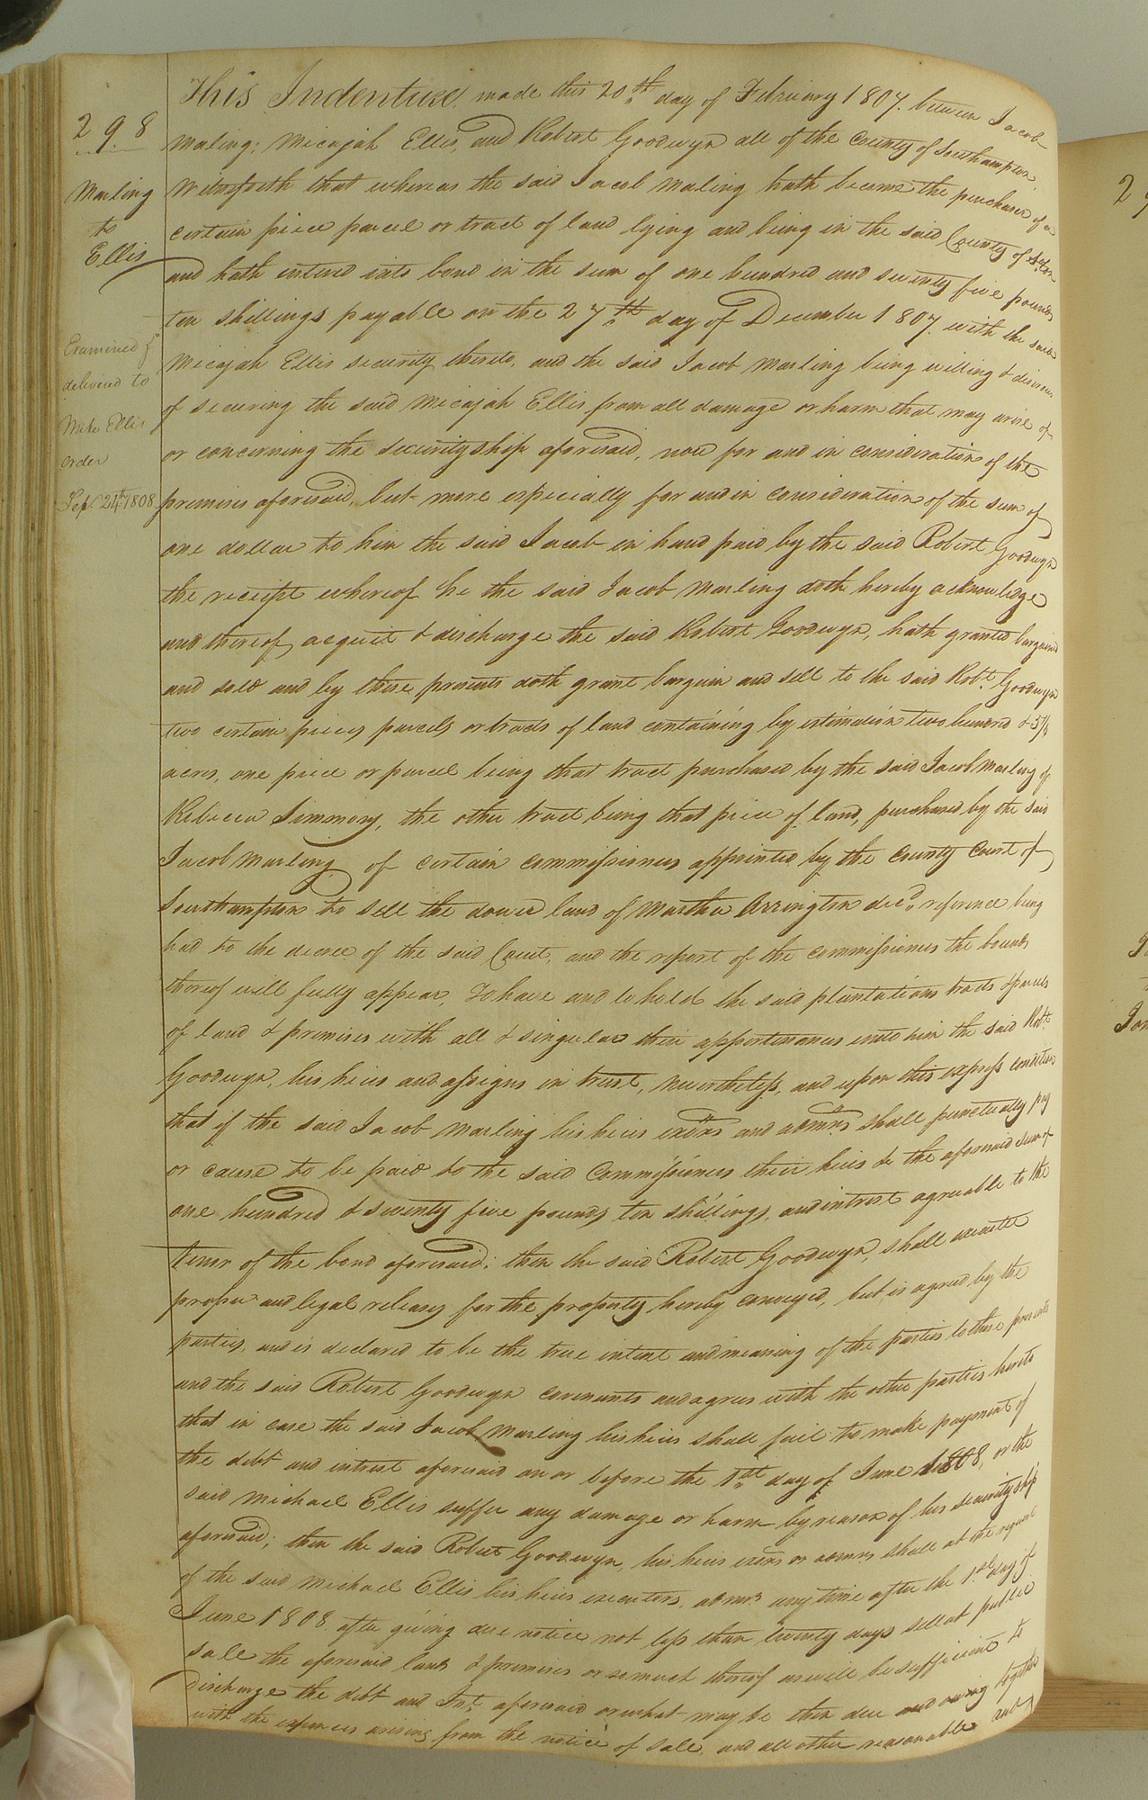 298
Marling
to
Ellis
Examined &
delivered to
Mike Ellis
order
Sept. 24th 1808
This Indenture, made this 20th day of February 1807. between Jacob
Maling, Micajah Ellis, and Robert Goodwyn all of the County of Southampton,
Witnesseth that whereas the said Jacob Maling hath became the purchaser of a
certain piece parcel or tract of land lying and being in the said County of
and hath entered into bond in the sum of one hundred and seventy five pounds
ten shillings payable on the 27th day of December 1807. with the said
Micajah Ellis security thereto, and the said Jacob Marling being willing & desirous
of securing the said Micajah Ellis from all damage or harm that may arise of
or concerning the securityship aforesaid, now for and in consideration of the
premises aforesaid, but more especially for and in consideration of the sum of
one dollar to him the said Jacob in hand paid by the said Robert Goodwyn
the receipt whereof he the said Jacob Marling doth hereby acknowledge
and thereof acquit & discharge the said Robert Goodwyn, hath granted bargained
and sold and by these presents doth grant bargain and sell to the said Robt. Goodwyn
two certain pieces parcels or tracts of land containing by estimation two hundred &
acres, one piece or parcel being that tract purchased by the said Jacob Marling of
Rebecca Simmons, the other tract being that piece of land, purchased by the said
Jacob Marling of certain commissioners appointed by the County Court of
Southampton to sell the dower land of Martha Arrington decd. reference being
had to the decree of the said Court, and the report of the commissioners the bounds
thereof will fully appear, To have and to hold the said plantations tracts & parcels
of land & premises with all & singular their appertinances unto him the said Robt.
Goodwyn, his heirs and assigns in trust, nevertheless, and upon this express condition,
that if the said Jacob Marling his heirs exōrs and admrs shall punctually pay
or cause to be paid to the said Commissioners their heirs &c the aforesaid sum of
one hundred & seventy five pounds ten shillings, and intrest agreable to the
tenor of the bond aforesaid; then the said Robert Goodwyn, shall execute
proper and legal releases for the property hereby conveyed, but is agreed by the
parties, and is declared to be the true intent and meaning of the parties to these presents
and the said Robert Goodwyn covenants and agrees with the other parties hereto
that in case the said Jacob Marling his heirs shall fail to make payment of
the debt and intrest aforesaid on or before the 1st day of June 1808, or the
said Michael Ellis suffer any damage or harm by reason of his securityship
aforesaid; then the said Robert Goodwyn, his heirs exōrs or admrs shall at the request
of the said Michael Ellis his heirs executors, admrs any time after the 1st day of
June 1808, after giving due notice not less than twenty days sell at public
sale the aforesaid land & premises or so much thereof as will be sufficient to
discharge the debt and Int. aforesaid or what may be then due and owing together
with the expences arising from the notice of sale, and all other reasonable and